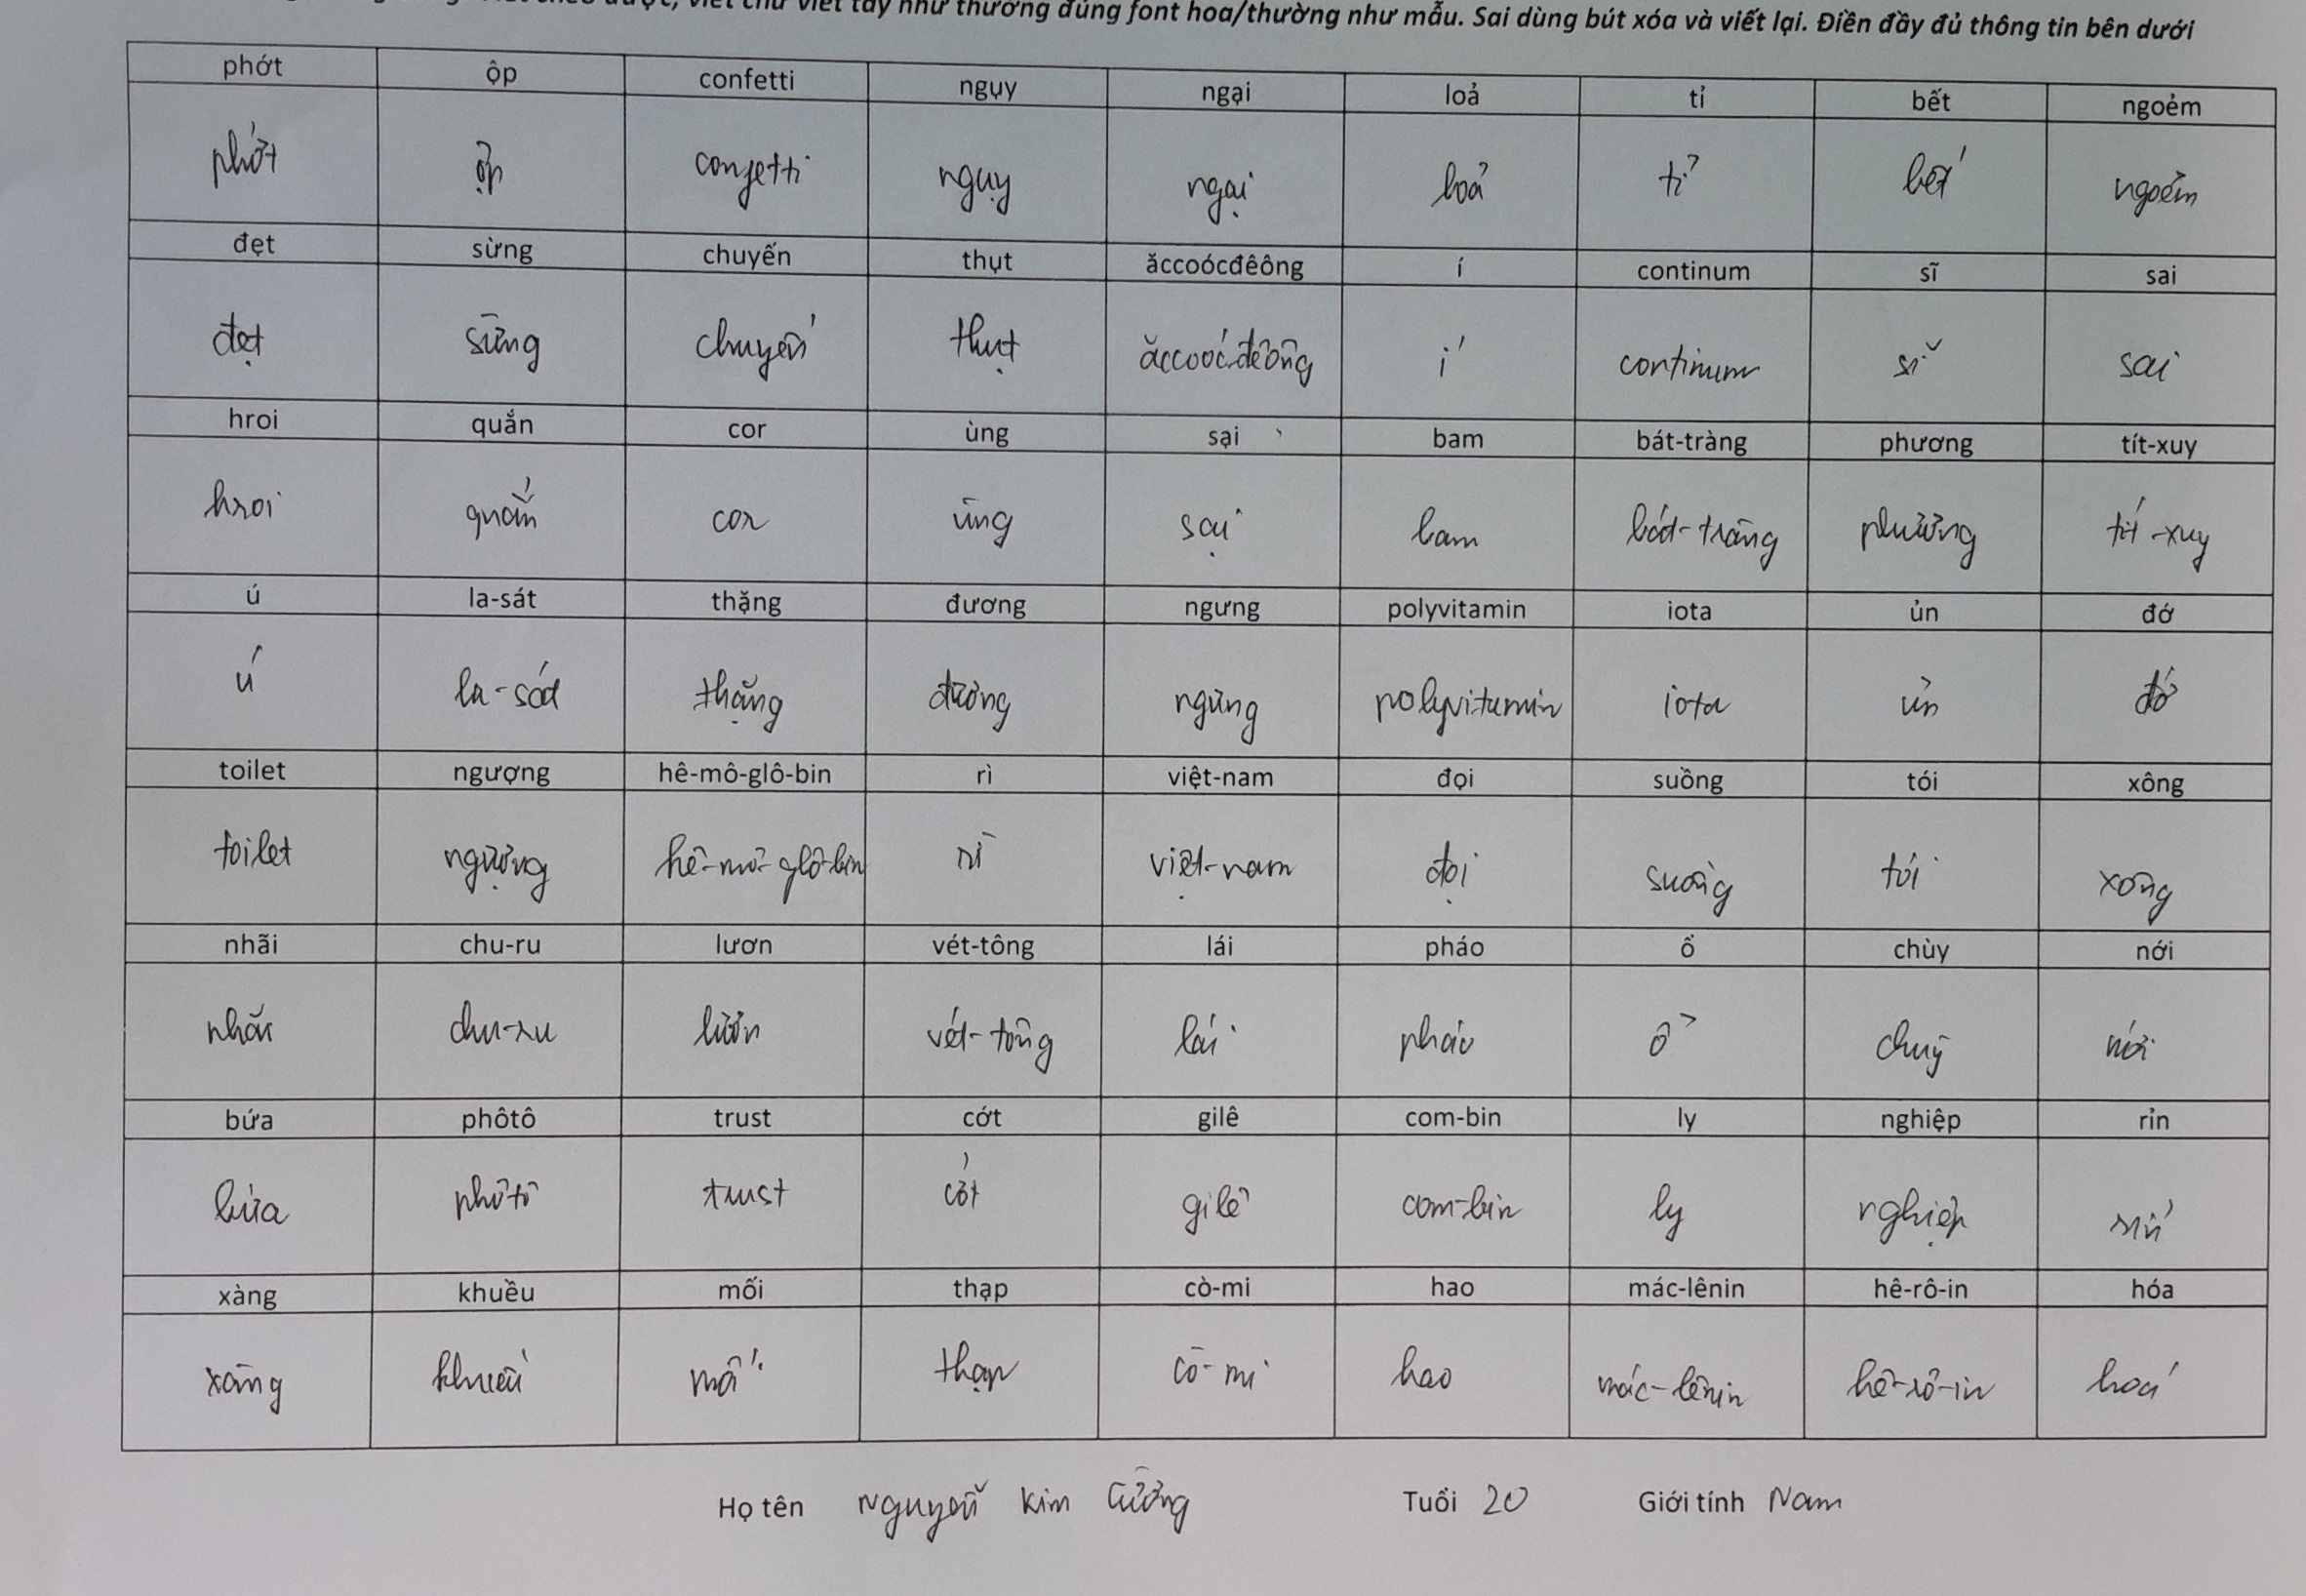 viết chữ viết tay như thường đúng font hoa/thường như mẫu. Sai dùng bút xóa và viết lại. Điền đầy đủ thông tin bên dưới
phớt ộp confetti ngụy ngại loả tỉ bết ngoẻm
phớt ộp confetti ngụy ngại loả tỉ bết ngoẻm
đẹt sừng chuyến thụt ăccoócđêông í continum sĩ sai
đẹt sừng chuyến thụt ăccoócđêông í continum sĩ sai
hroi quắn cor ùng sại bam bát-tràng phương tít-xuy
hroi quắn cor ùng sại bam bát-tràng phương tít-xuy
ú la-sát thặng đương ngưng polyvitamin iota ủn đớ
ú la-sát thặng đương ngưng polyvitamin iota ủn đớ
toilet ngượng hê-mô-glô-bin rì việt-nam đọi suồng tói xông
toilet ngượng hê-mô-glô-bin rì việt-nam đọi suồng tói xông
nhãi chu-ru lươn vét-tông lái pháo ổ chùy nới
nhãi chu-ru lươn vét-tông lái pháo ổ chùy nới
bứa phôtô trust cớt gilê com-bin ly nghiệp rỉn
bứa phôtô trust cớt gilê com-bin ly nghiệp rỉn
xàng khuều mối thạp cò-mi hao mác-lênin hê-rô-in hóa
xàng khuều mối thạp cò-mi hao mác-lênin hê-rô-in hoá
Họ tên Nguyễn Kim Cương Tuổi 20 Giới tính Nam